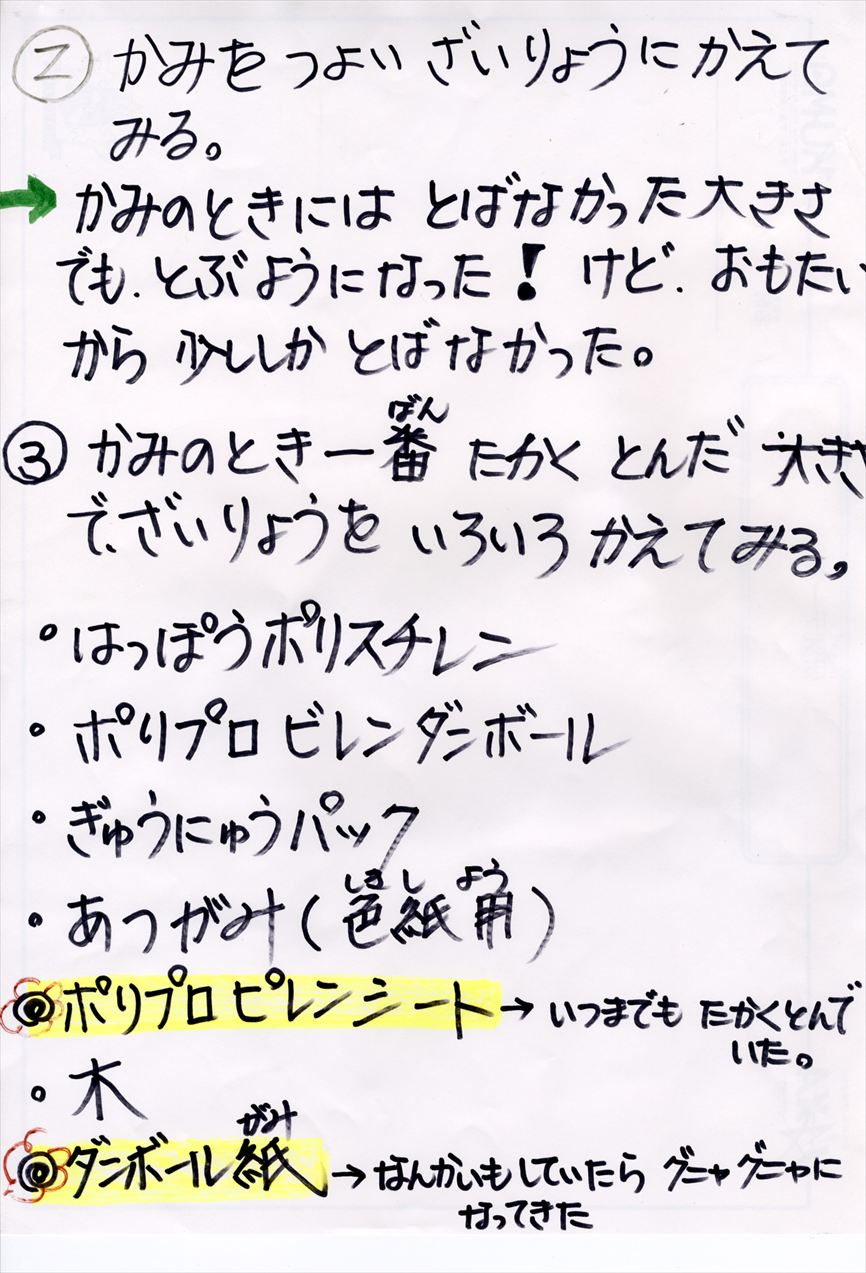 ② かみをつよい ざいりょうに かえて
みる。
→ かみのときには とばなかった大きさ
でも、とぶようになった! けど、おもたい
から 少ししか とばなかった。
ばん
③ かみのとき一番 たかく とんだ 大きさ
で、ざいりょうを いろいろ かえてみる。
・はっぽうポリスチレン
・ポリプロビレンダンボール
・ぎゅうにゅうパック
しきし よう
・あつがみ(色紙用)
◎ポリプロピレンシート→いつまでも たかくとんで
いた。
・木
がみ
◎ダンボール紙→なんかいもしていたら グニャグニャに
なってきた